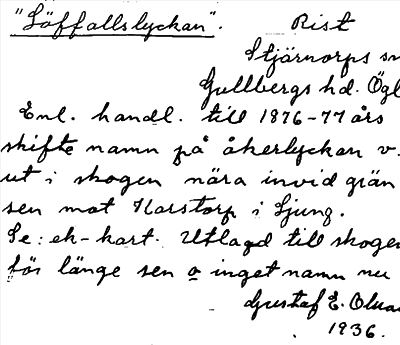 "Löffallslyckan". Rist
Stjärnorps sn
Gullbergs hd. Ögl
Enl. handl. till 1876-77 års
skifte namn på åkerlyckan v.
ut i skogen nära invid grän
sen mot Harstorp i Ljung.
Se: ek-kart. Utlagd till skogen
för länge sen o inget namn nu
Gustaf E.
1936.